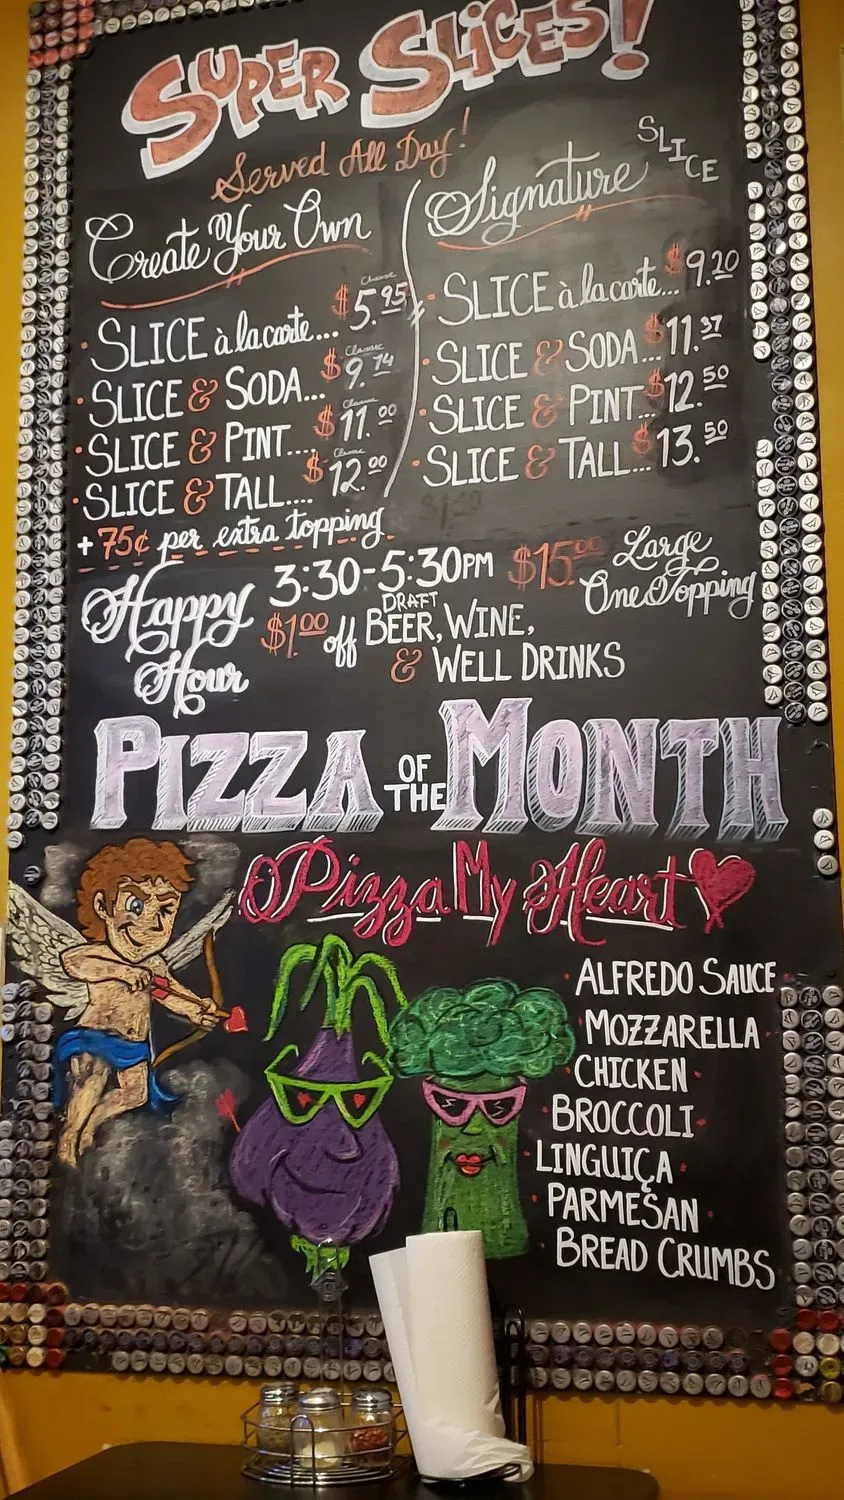 SUPER SLICES!
Served All Day!
Create Your Own
SLICE à la carte... $5.95 Classic
SLICE & SODA... $9.74 Classic
SLICE & PINT.... $11.00 Classic
SLICE & TALL.... $12.00 Classic
+ 75¢ per extra topping
Signature SLICE
SLICE à la carte... $9.20
SLICE & SODA... $11.37
SLICE & PINT... $12.50
SLICE & TALL... $13.50
Happy Hour
3:30-5:30PM
$1.00 off DRAFT BEER, WINE,
& WELL DRINKS
$15.00 Large
One Topping
PIZZA OF THE MONTH
Pizza My Heart
ALFREDO SAUCE
MOZZARELLA
CHICKEN
BROCCOLI
LINGUIÇA
PARMESAN
BREAD CRUMBS